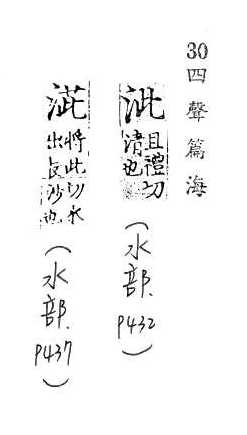 30四聲篇海
泚 且禮切 清也 (水部. P432)
㳧 將此切水 出長沙也 (水部. P437)